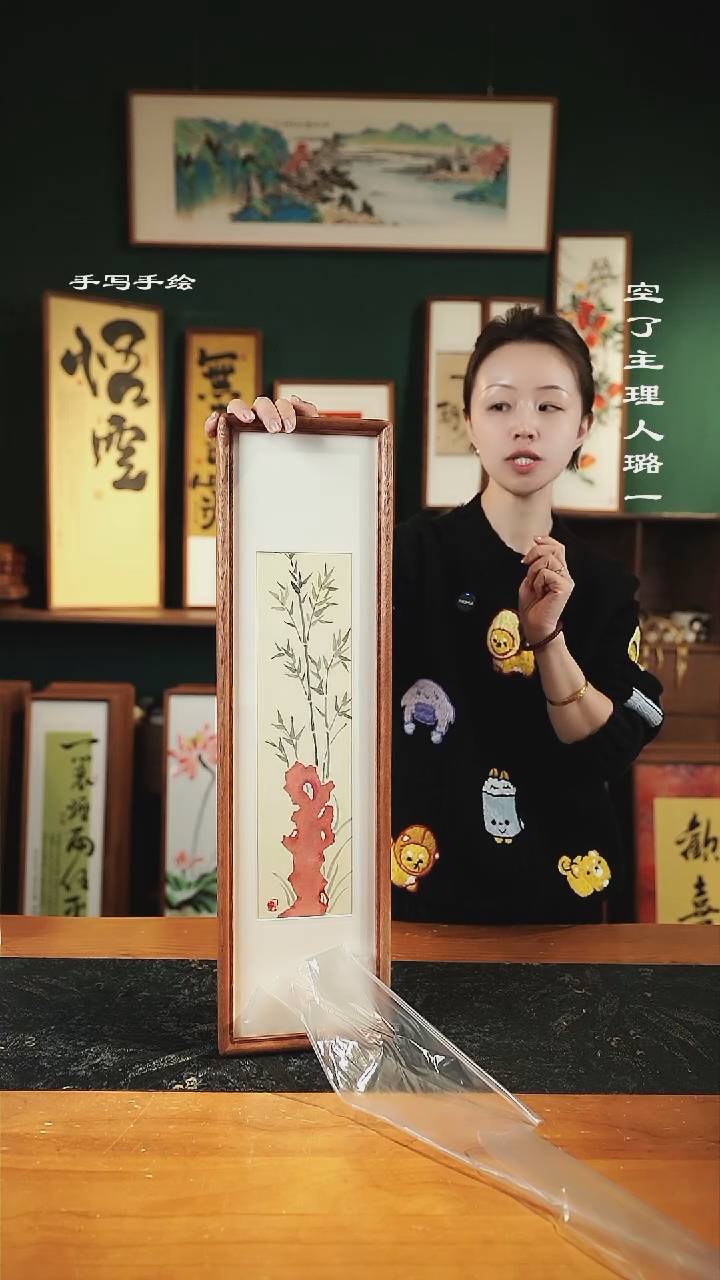 手写手绘
空了主理人璐一
悟空
無
一蓑烟雨任平
歡喜